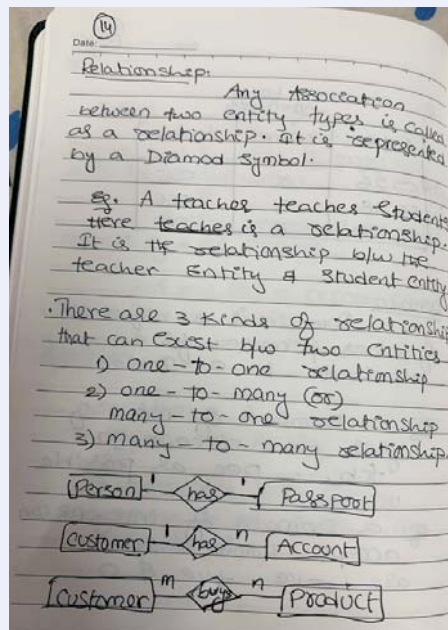 14
Date:
Relationship:
Any Association
between two entity types is called
as a relationship. It is represented
by a Diamod symbol.
Eg. A teacher teaches Students
Here teaches is a relationship.
It is the relationship b/w the
teacher Entity & Student entity
. There are 3 kinds of relationship
that can exist b/w two Entities
1) one-to-one relationship
2) one-to-many (or)
many-to-one relationship
3) many-to-many relationship.
Person 1 has 1 Passpoot
Customer 1 has n Account
Customer m buys n Product